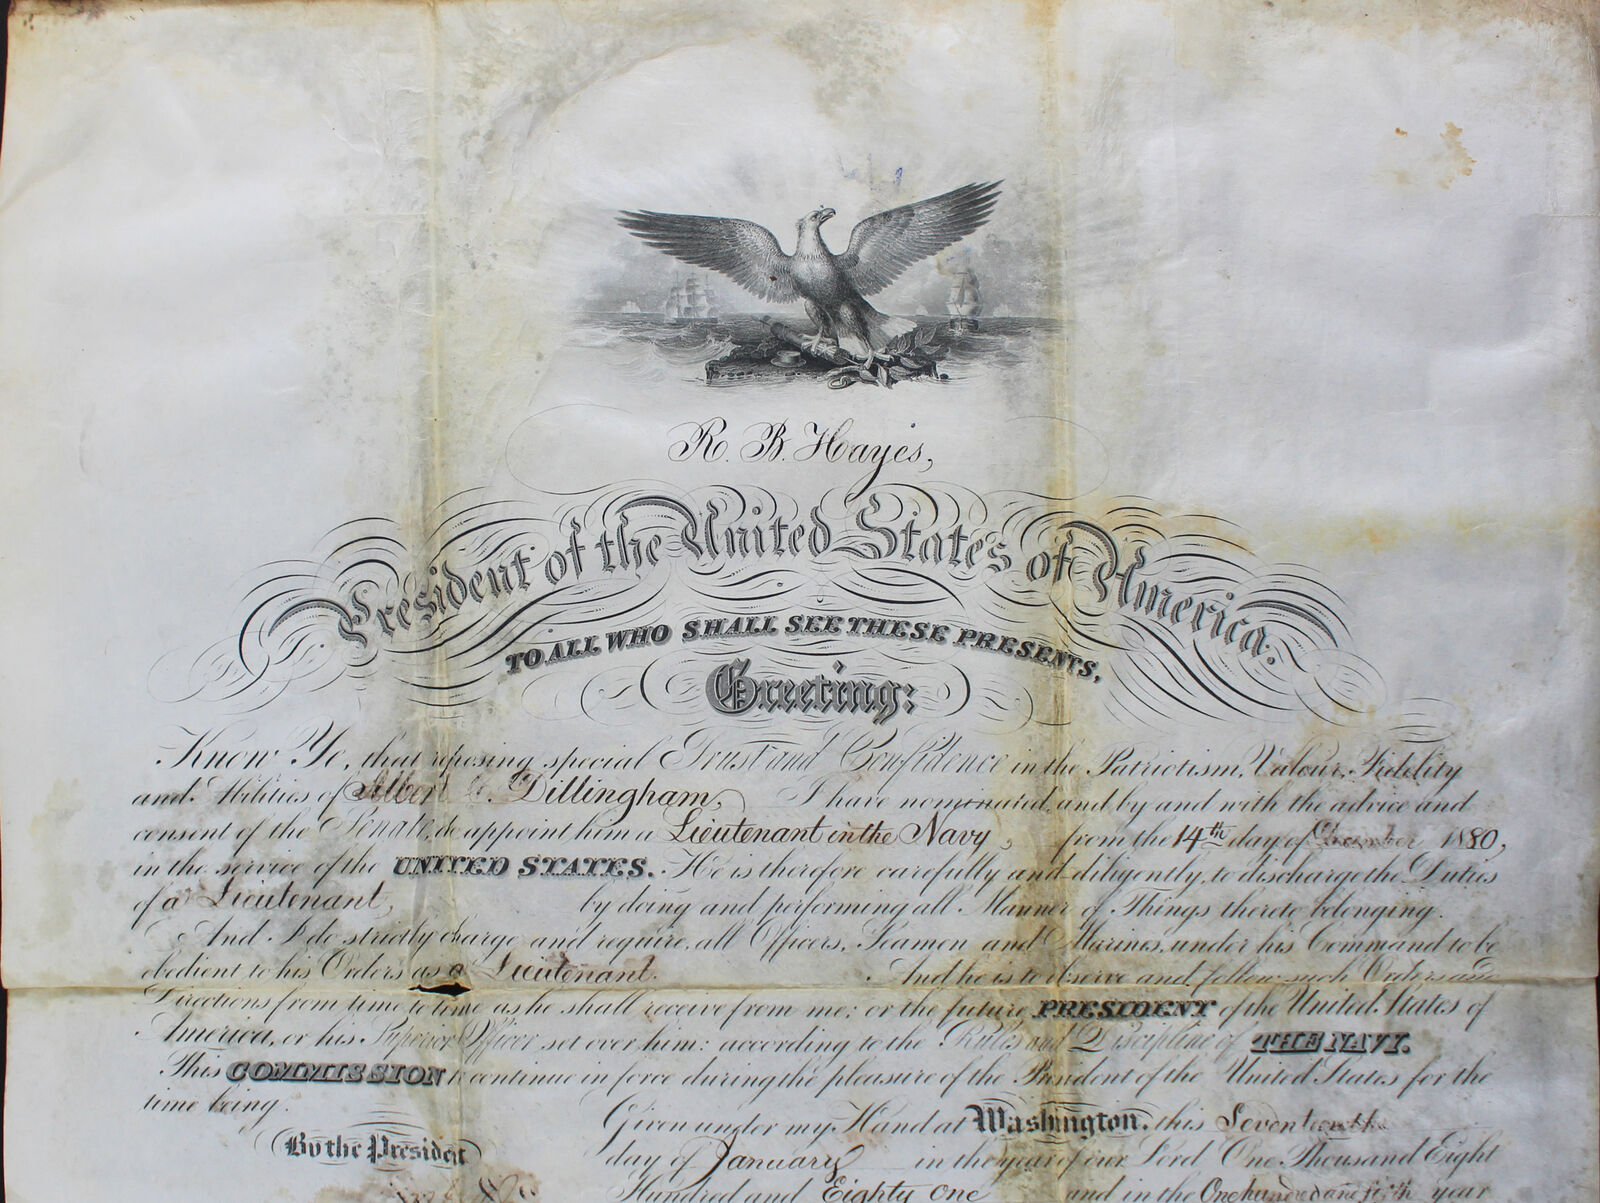 R. B. Hayes,
President of the United States of America.
TO ALL WHO SHALL SEE THESE PRESENTS,
Greeting:
Know Ye, that reposing special Trust and Confidence in the Patriotism, Valour, Fidelity
and Abilities of Albert C. Dillingham, I have nominated, and by and with the advice and
consent of the Senate, do appoint him a Lieutenant in the Navy, from the 14th day of December 1880,
in the service of the UNITED STATES. He is therefore carefully and diligently to discharge the Duties
of a Lieutenant, by doing and performing all Manner of Things thereto belonging.
And I do strictly charge and require all Officers, Seamen and Marines, under his Command to be
obedient to his Orders as a Lieutenant. And he is to observe and follow such Orders and
Directions from time to time as he shall receive from me; or the future PRESIDENT of the United States of
America, or his Superior Officer set over him: according to the Rules and Discipline of THE NAVY.
This COMMISSION to continue in force during the pleasure of the President of the United States for the
time being.
Given under my Hand at Washington, this Seventeenth
By the President
day of January in the year of our Lord One Thousand Eight
Hundred and Eighty One and in the One hundred and fifth year